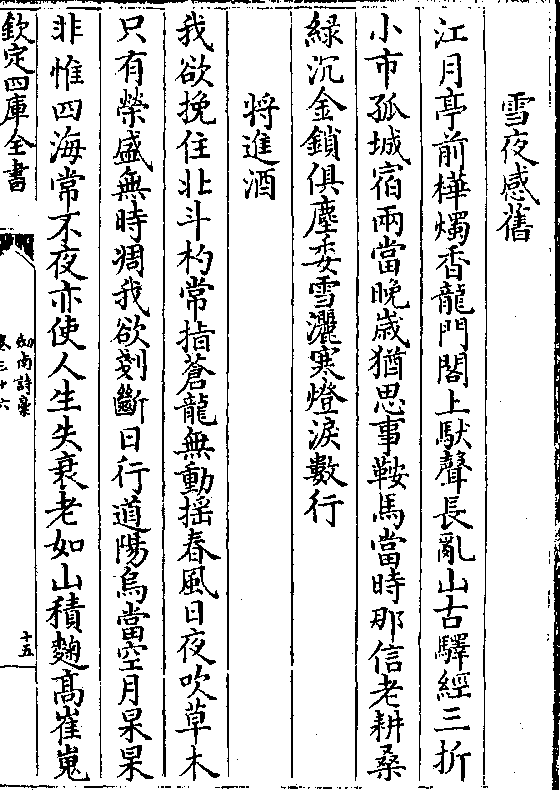 雪夜感舊
江月亭前樺燭香龍門閣上馱聲長亂山古驛經三折
小市孤城宿兩當晚歲猶思事鞍馬當時那信老耕桑
緑沉金鎖俱塵委雪灑寒燈淚數行
将進酒
我欲挽住北斗杓常指蒼龍無動揺春風日夜吹草木
只有榮盛無時凋我欲剗斷日行道陽烏當空月杲杲
非惟四海常不夜亦使人生失衰老如山積麴髙崔嵬
欽定四庫全書
劍南詩稾
卷三十六
十五